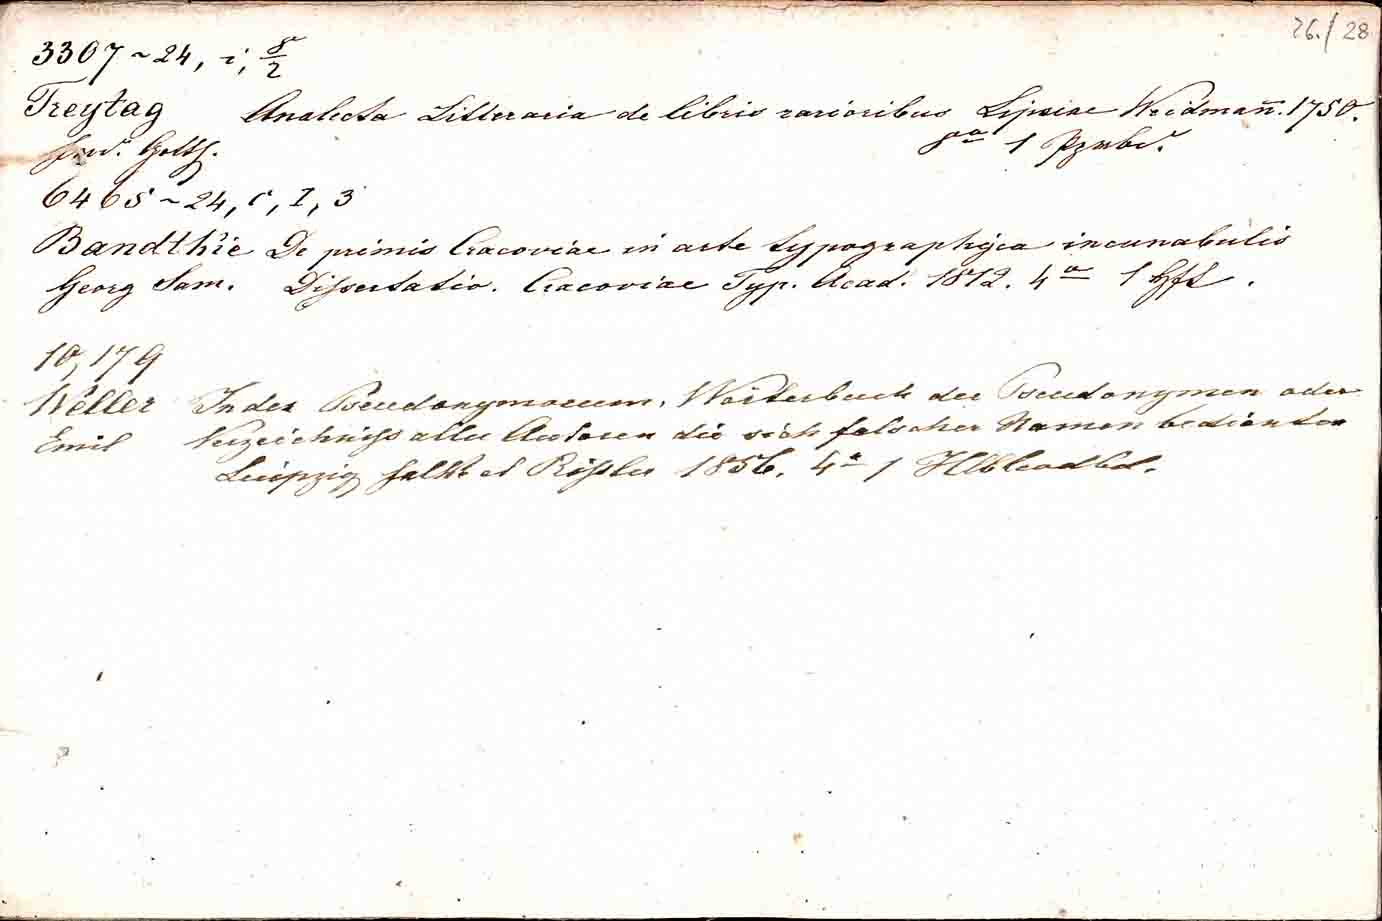 26./28
3307 ~ 24, i, 8/2
Freytag Analecta Litteraria de libris rarioribus Lipsiae Weidman̄. 1750.
Gotth. 8º 1 Ppzbd.
6465 ~ 24, c, I, 3
Bandthie De primis Cracoviae in arte typographica incunabulis
Georg Sam. Dissertatio. Cracoviae Typ. Acad. 1812. 4º 1 Hft.
10,179
Weller Index Pseudonymorum. Wörterbuch der Pseudonymen oder
Emil Verzeichniss aller Autoren die sich falscher Namen bedienten
Leipzig Falke et Rössler 1856. 4º 1 Hlbleadbd.